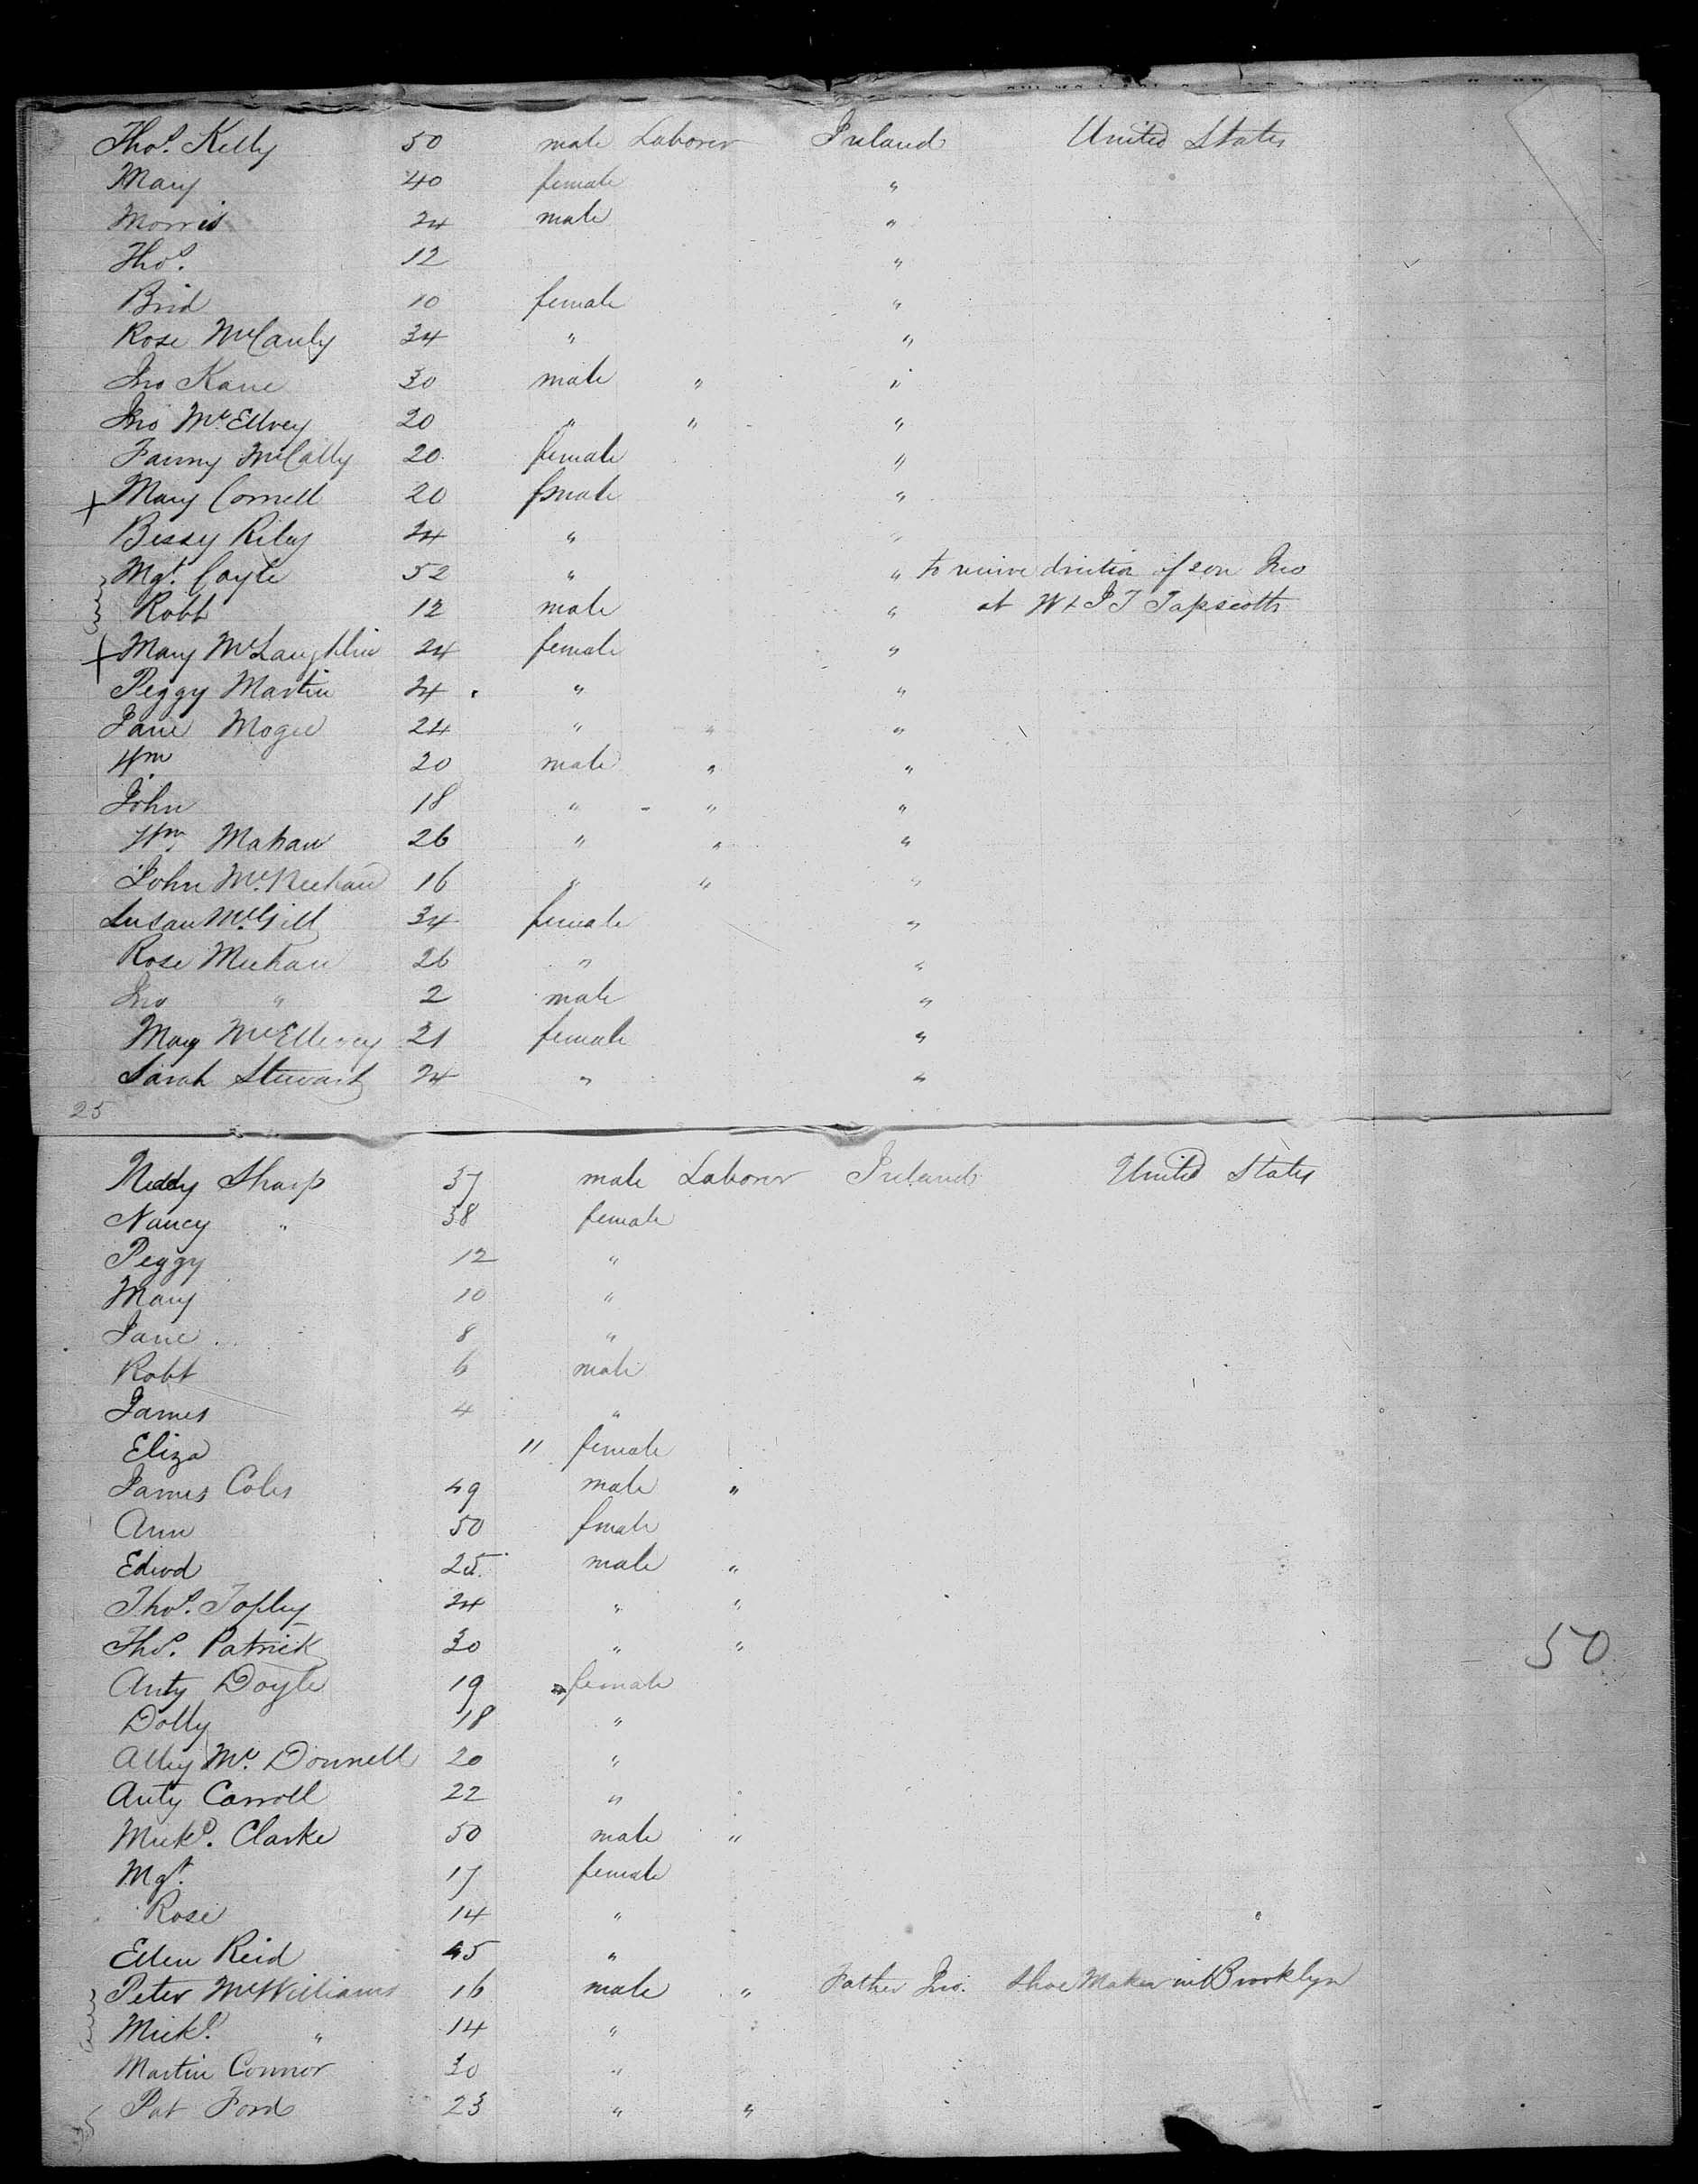 Thos. Kelly 50 male Laborer Ireland United States
Mary 40 female "
Morris 24 male "
Thos. 12 "
Brid 10 female "
Rose McCauly 34 " "
Jno Kane 30 male " "
Jno McEllvey 20 " " "
Fanny McCally 20 female "
+ Mary Connell 20 female "
Bessy Riley 24 " "
Mgt. Coyle 52 " " to receive direction of son Jno
Robt 12 male " at W & J T Tapscotts
+ Mary McLaughlin 24 female "
Peggy Martin 24 " "
Jane Magee 24 " " "
Wm 20 male " "
John 18 " " "
Wm Mahan 26 " " "
John McMeehan 16 " " "
Susan McGill 34 female "
Rose Meehan 26 " "
Jno " 2 male "
Mary McEllevey 21 female "
Sarah Stewart 24 " "
25
Neddy Sharp 37 male Laborer Ireland United States
Nancy " 38 female
Peggy 12 "
Mary 10 "
Jane 8 "
Robt 6 male
James 4 "
Eliza 11 female
James Coles 49 male "
Ann 50 fmale
Edwd 25 male "
Thos. Topley 24 " "
Thos. Patrick 30 " "
50
Anty Doyle 19 female
Dolly 18 "
Alley Mc. Donnell 20 "
Anty Carroll 22 "
Michl. Clarke 50 male "
Mgt. 17 female
Rose 14 " "
Ellen Reid 45 "
Peter McWilliams 16 male " Father Jno. Shoe Maker in Brooklyn
Michl. " 14 "
Martin Connor 30 "
Pat Ford 23 " "
25